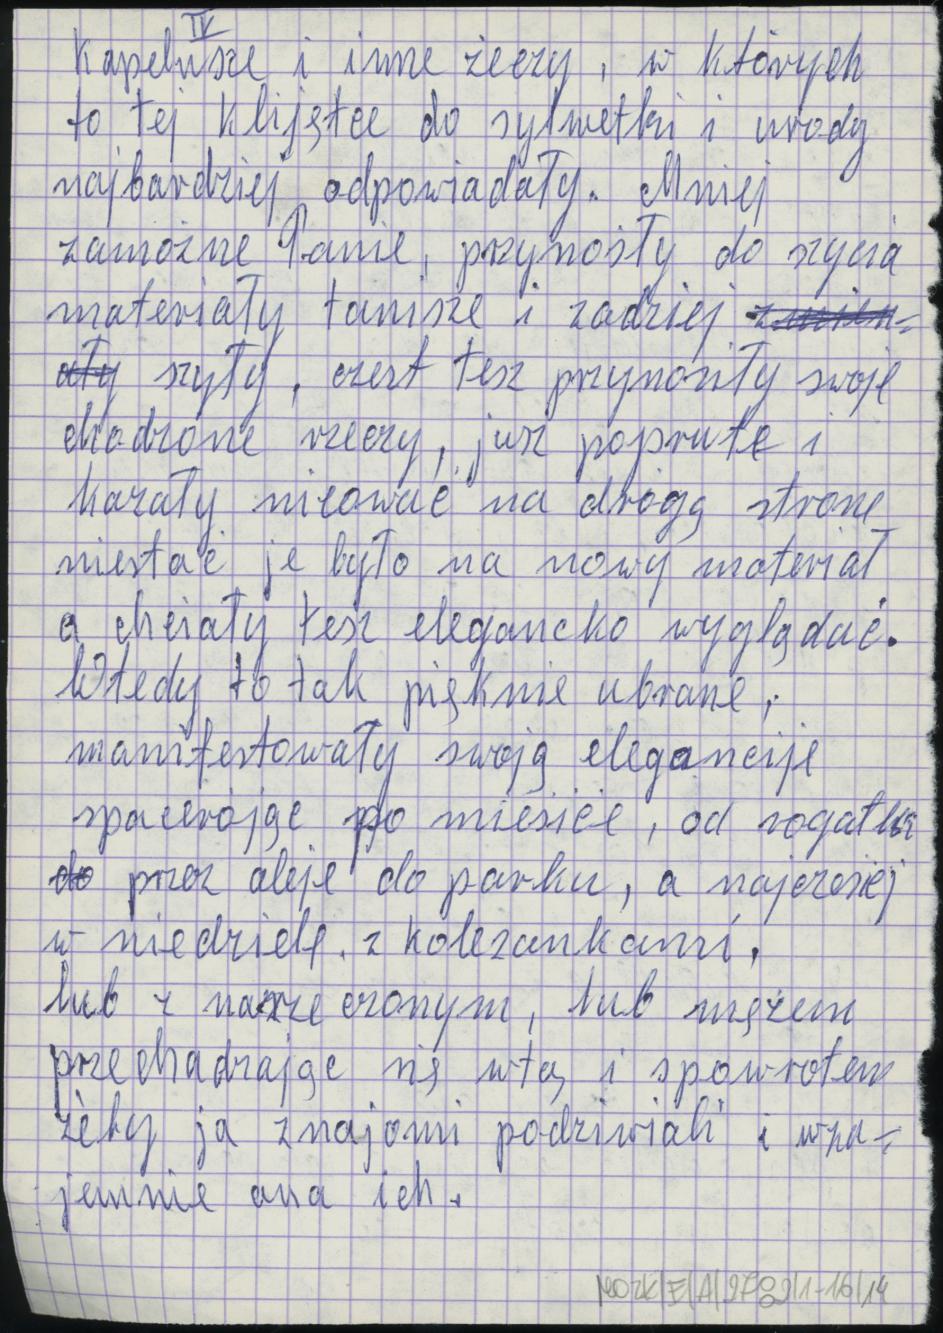 IV
Kapelusze i inne żeczy, w których
to tej Klijętce do sylwetki i urody
najbardziej odpowiadały. Mniej
zamożne Panie, przynosiły do szycia
materiały tańsze i żadziej
szyły, czest tesz przynosiły swoje
chodzone rzeczy, jusz poprute i
kazały nicować na drógą strone
niestać je było na nowy materiał
a chciały tesz elegancko wyglądać.
Wtedy to tak pięknie ubrane,
manifestowały swoją elegancije
spacerójąc po mieście, od rogatki
przez aleje do parku, a najczęsiej
w niedziele. z koleżankami,
lub z narzeczonym, lub mężem
przechadzając się wtą i spowrotem
żeby ja znajomi podziwiali i wza-
jemnie ona ich.
MOZK/E/A/2789/1-16/14